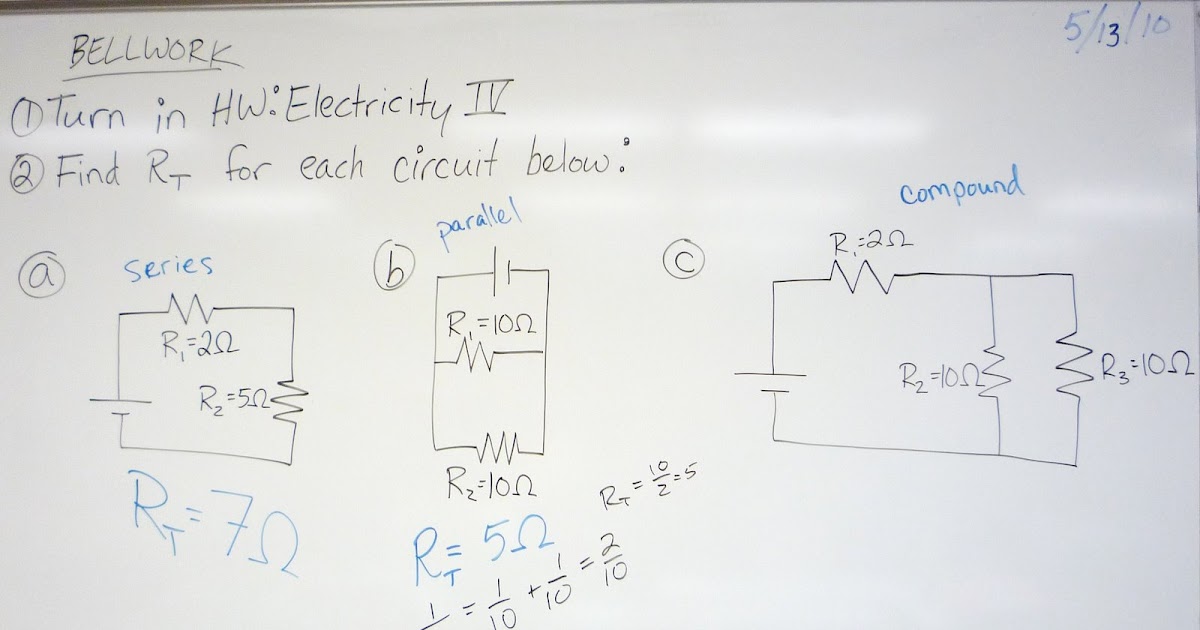 5/13/10
BELLWORK
① Turn in HW: Electricity IV
② Find R_T for each circuit below:
ⓐ series
R₁=2Ω
R₂=5Ω
R_T=7Ω
ⓑ parallel
R₁=10Ω
R₂=10Ω
R_T=10/2=5
R_T=5Ω
1/ = 1/10 + 1/10 = 2/10
ⓒ compound
R₁=2Ω
R₂=10Ω
R₃=10Ω